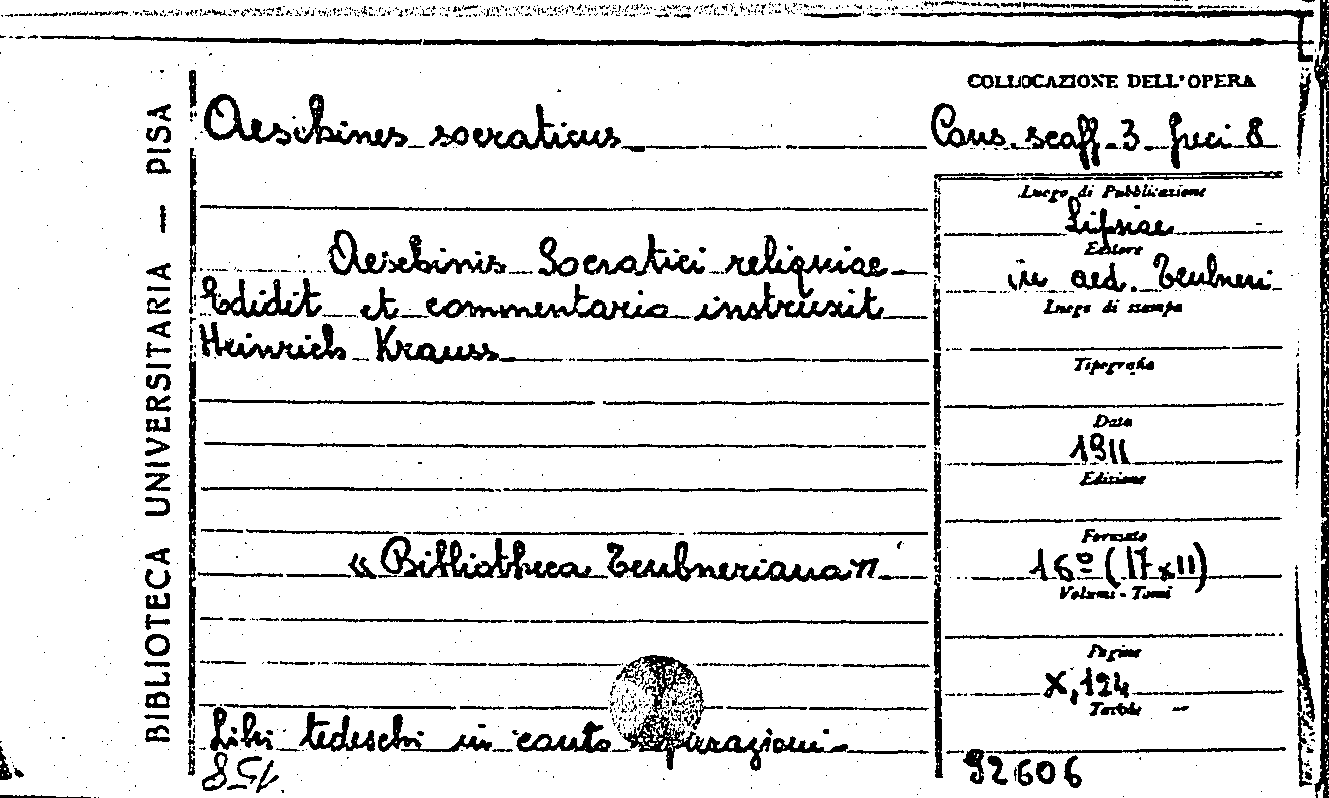 BIBLIOTECA UNIVERSITARIA — PISA
COLLOCAZIONE DELL'OPERA
Aeschines socraticus
Cons. scaff. 3 Greci 8
Luogo di Pubblicazione
Lipsiae
Aeschinis Socratici reliquiae
Edidit et commentario instruxit
Heinrich Krauss
Editore
in aed. Teubneri
Luogo di stampa
Tipografia
Data
1911
Edizione
« Bibliotheca Teubneriana »
Formato
16º (17x11)
Volumi - Tomi
Pagine
X, 124
Tavole
Libri tedeschi in conto
92606